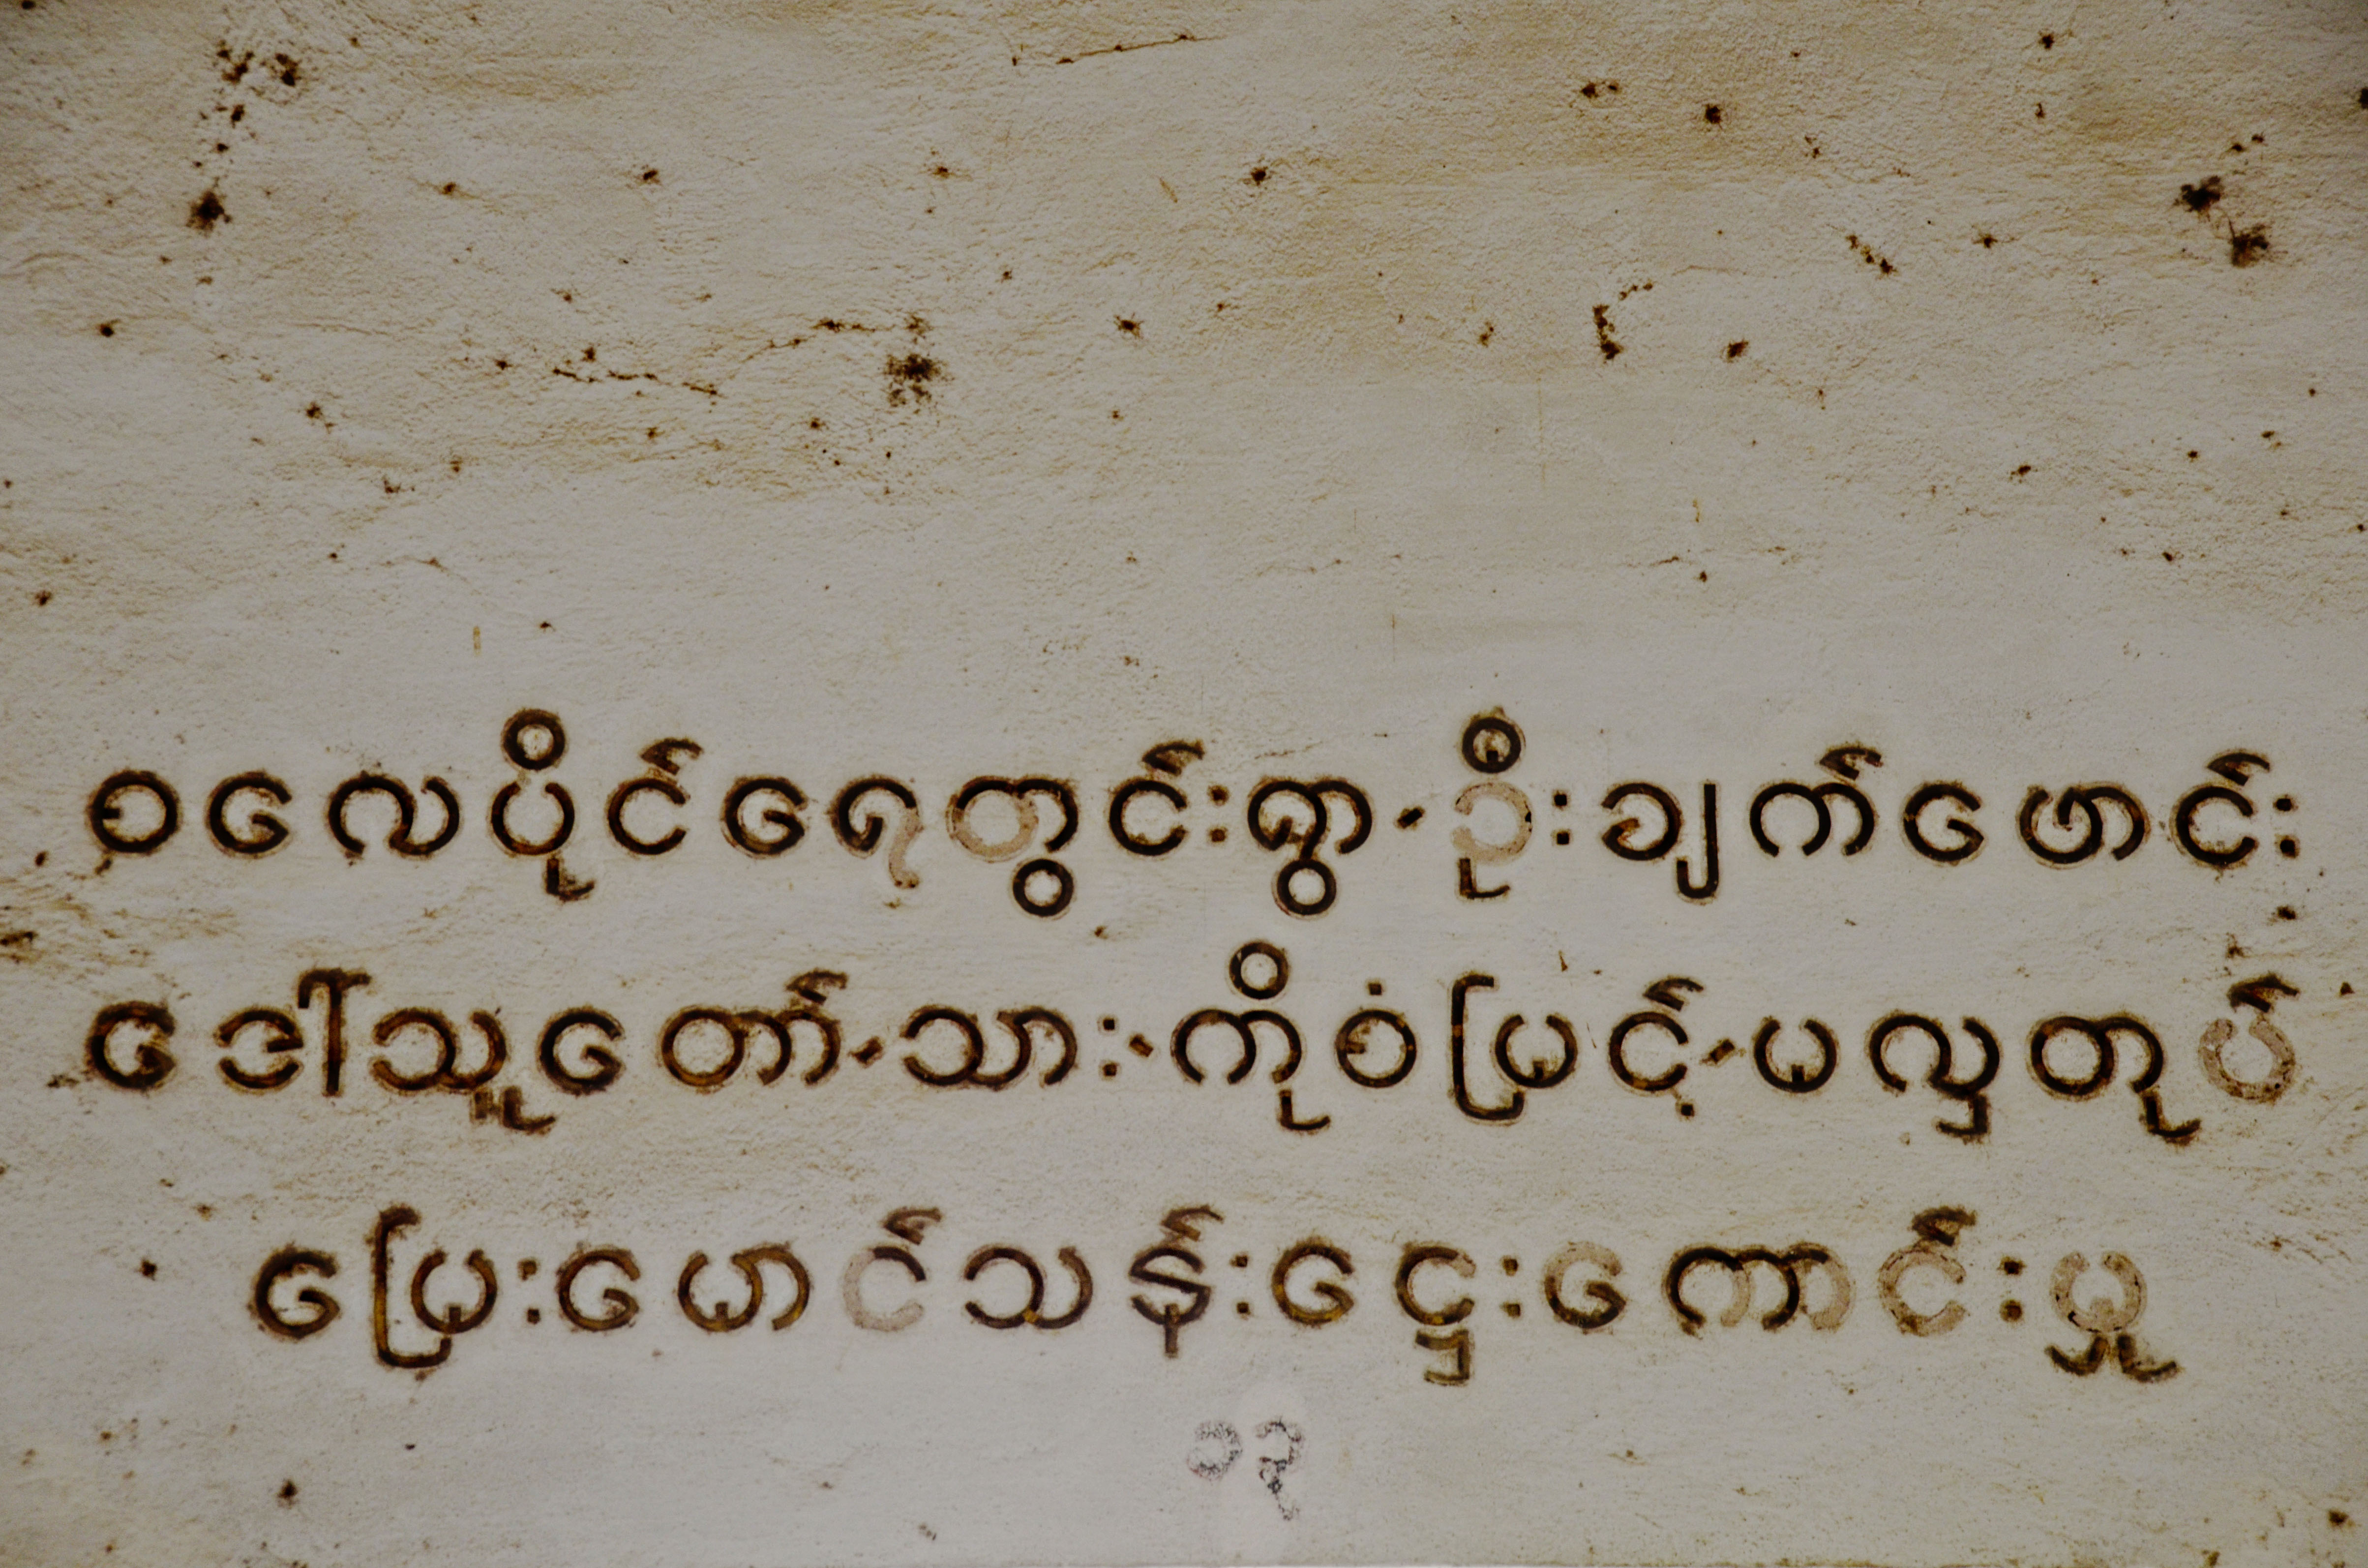 စလေပိုင်ရေတွင်းရွာ-ဦးချက်ဖောင်း
ဒေါ်သူတော်-သား-ကိုစံမြင့်-မလှတုပ်
မြေးမောင်သန်းဌေးကောင်းမှု
၁၃